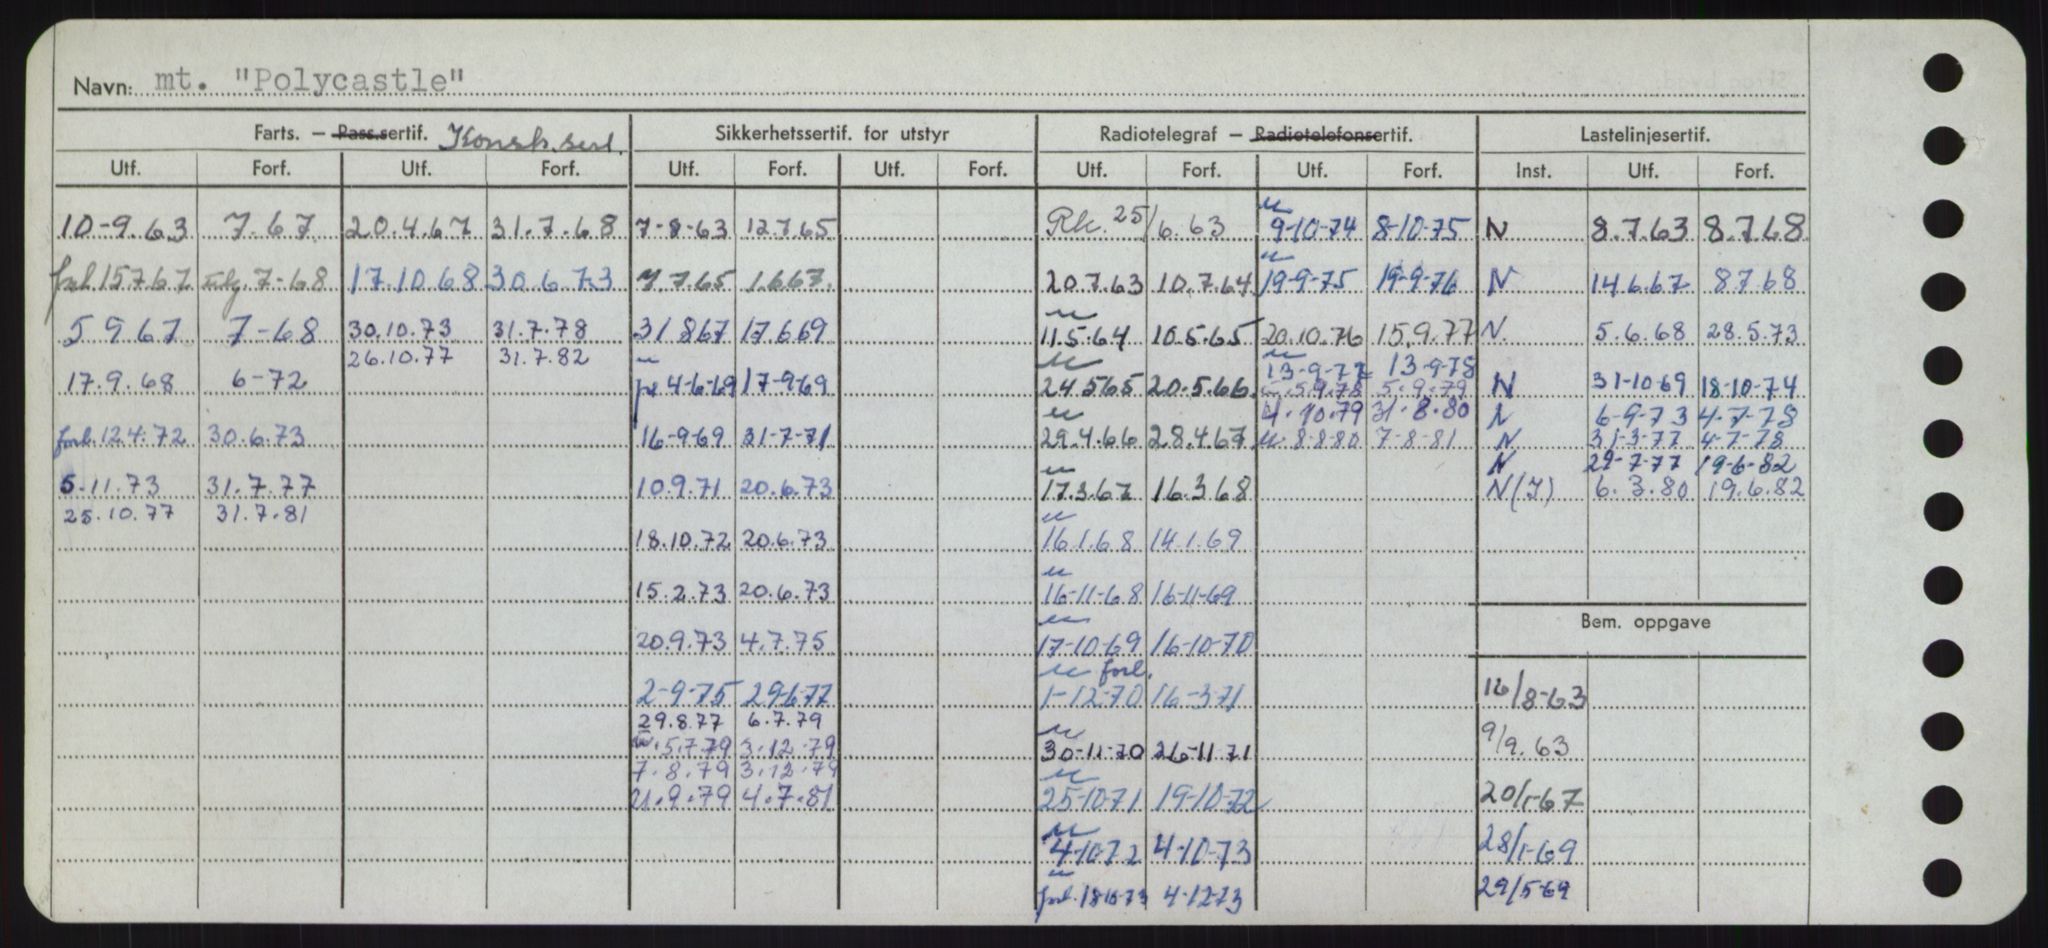 Navn: mt. "Polycastle"
Farts. – Pass.sertif. Konstr. sert. Sikkerhetssertif. for utstyr Radiotelegraf – Radiotelefonsertif. Lastelinjesertif.
Utf. Forf. Utf. Forf. Utf. Forf. Utf. Forf. Utf. Forf. Utf. Forf. Inst. Utf. Forf.
10-9.63 7.67 20.4.67 31.7.68 7-8-63 12.7.65 Rk. 25/6.63 " 9-10-74 8-10-75 N 8.7.63 8.7.68
forl. 15.7.67 7-68 17.10.68 30.6.73 7.7.65 1.6.67. 20.7.63 10.7.64 " 19-9-75 19-9-76 N 14.6.67 8.7.68
5.9.67 7-68 30.10.73 31.7.78 31.8.67 17.6.69 " 11.5.64 10.5.65 20.10.76 15.9.77 N. 5.6.68 28.5.73
26.10.77 31.7.82
17.9.68 6-72 4-6-69 17-9-69 " 24.5.65 20.5.66. " 13-9-77 13-9-78 N 31-10-69 18-10-74
" 5.9.78 5.9.79
4.10.79 31.8.80 N 6-9-73 4-7-78
forl. 12.4.72 30.6.73 16-9-69 31-7-71 " 29.4.66 28.4.67. " 8-8-80 7-8-81 N 31-3-77 4-7-78
N 29-7-77 19-6-82
5-11.73 31.7.77 10.9.71 20.6.73 " 17.3.67 16.3.68 N(I) 6.3.80 19.6.82
25.10.77 31.7.81
18.10.72 20.6.73 " 16.1.68 14.1.69
15.2.73 20.6.73 " 16-11-68 16-11-69
Bem. oppgave
20.9.73 4.7.75 " 17-10-69 16-10-70
2-9-75 29-6-77 " forl. 1-12-70 16-3-71 16/8-63
29.8.77 6.7.79
" 5.7.79 3.12.79 " 30-11-70 26-11-71 9/9.63
7.8.79 3.12.79
21.9.79 4.7.81 " 25-10-71 19-10-72 20/1-67
" 4-10-72 4-10-73 28/1-69
" forl. 18-10-73 4-12-73 29/5-69